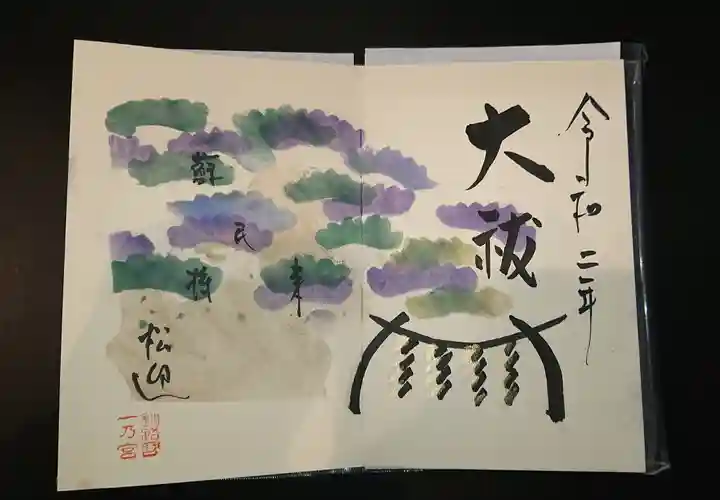 令和二年
大祓
蘇民将来
松迎
一乃宮